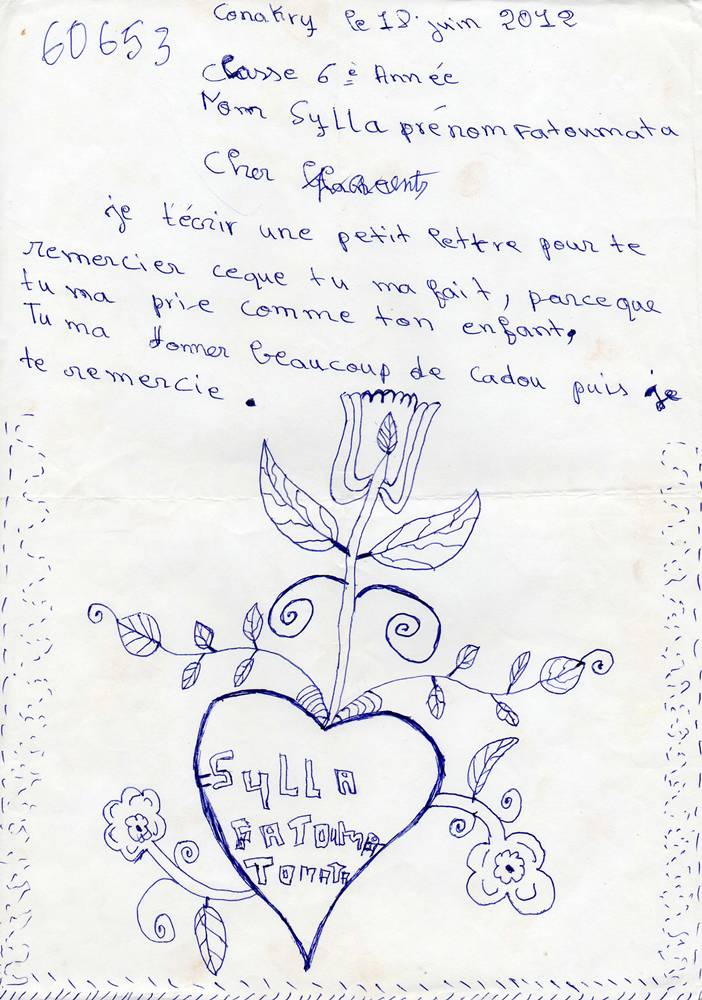 60653
Conakry le 18 juin 2012
Classe 6è Année
Nom Sylla prénom Fatoumata
Cher Parents
je t'écrir une petit lettre pour te
remercier ceque tu ma fait, parceque
tu ma prie comme ton enfant,
Tu ma donner beaucoup de cadou puis je
te remercie.
Sylla
FATOUMA